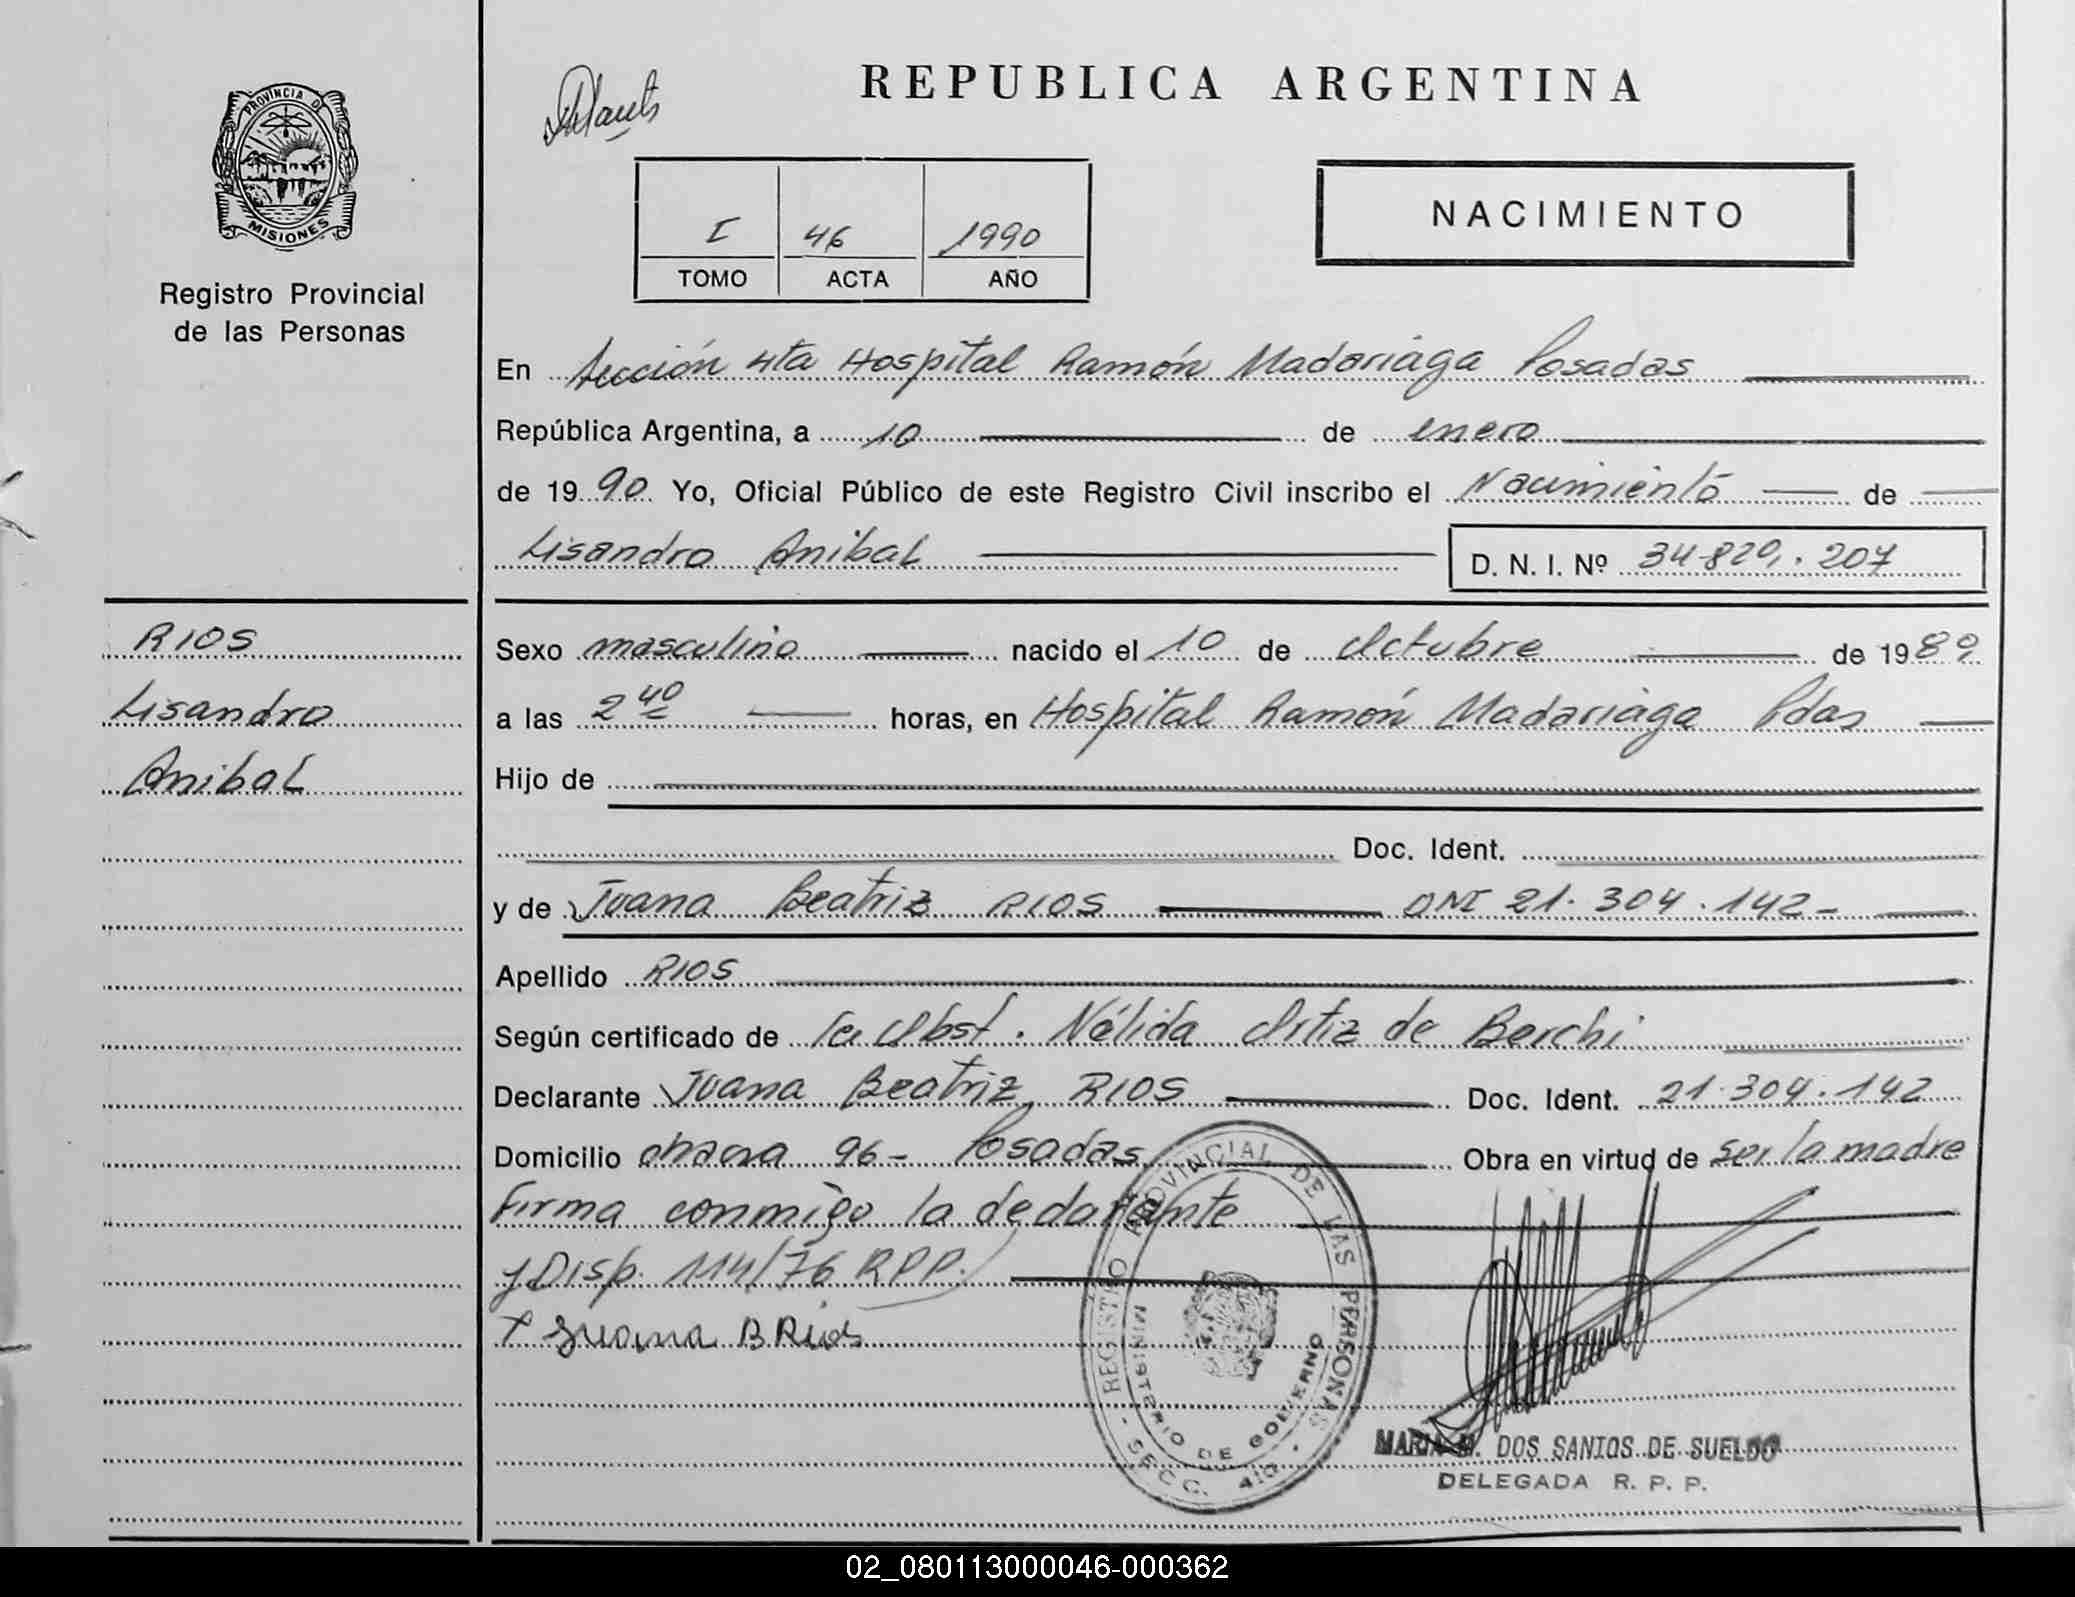 REPUBLICA ARGENTINA
PROVINCIA D MISIONES
Registro Provincial
de las Personas
I 46 1990
TOMO ACTA AÑO
NACIMIENTO
En Sección 4ta Hospital Ramón Madariaga Posadas
República Argentina, a 10 de enero
de 1990 Yo, Oficial Público de este Registro Civil inscribo el Nacimiento de
Lisandro Anibal D. N. I. Nº 34.829.207
RIOS
Lisandro
Anibal
Sexo masculino nacido el 10 de Octubre de 1989
a las 2 40 horas, en Hospital Ramón Madariaga Pdas
Hijo de
Doc. Ident.
y de Juana Beatriz RIOS DNI 21.304.142-
Apellido RIOS
Según certificado de la Obst. Nélida Ortiz de Berchi
Declarante Juana Beatriz RIOS Doc. Ident. 21.304.142
Domicilio chacra 96- Posadas Obra en virtud de ser la madre
Firma conmigo la declarante
y Disp. 114/76 RPP.
Juana B Rios
REGISTRO PROVINCIAL DE LAS PERSONAS - SECC. 4ta -
MINISTERIO DE GOBIERNO
MARIA M. DOS SANTOS DE SUELDO
DELEGADA R. P. P.
02_080113000046-000362